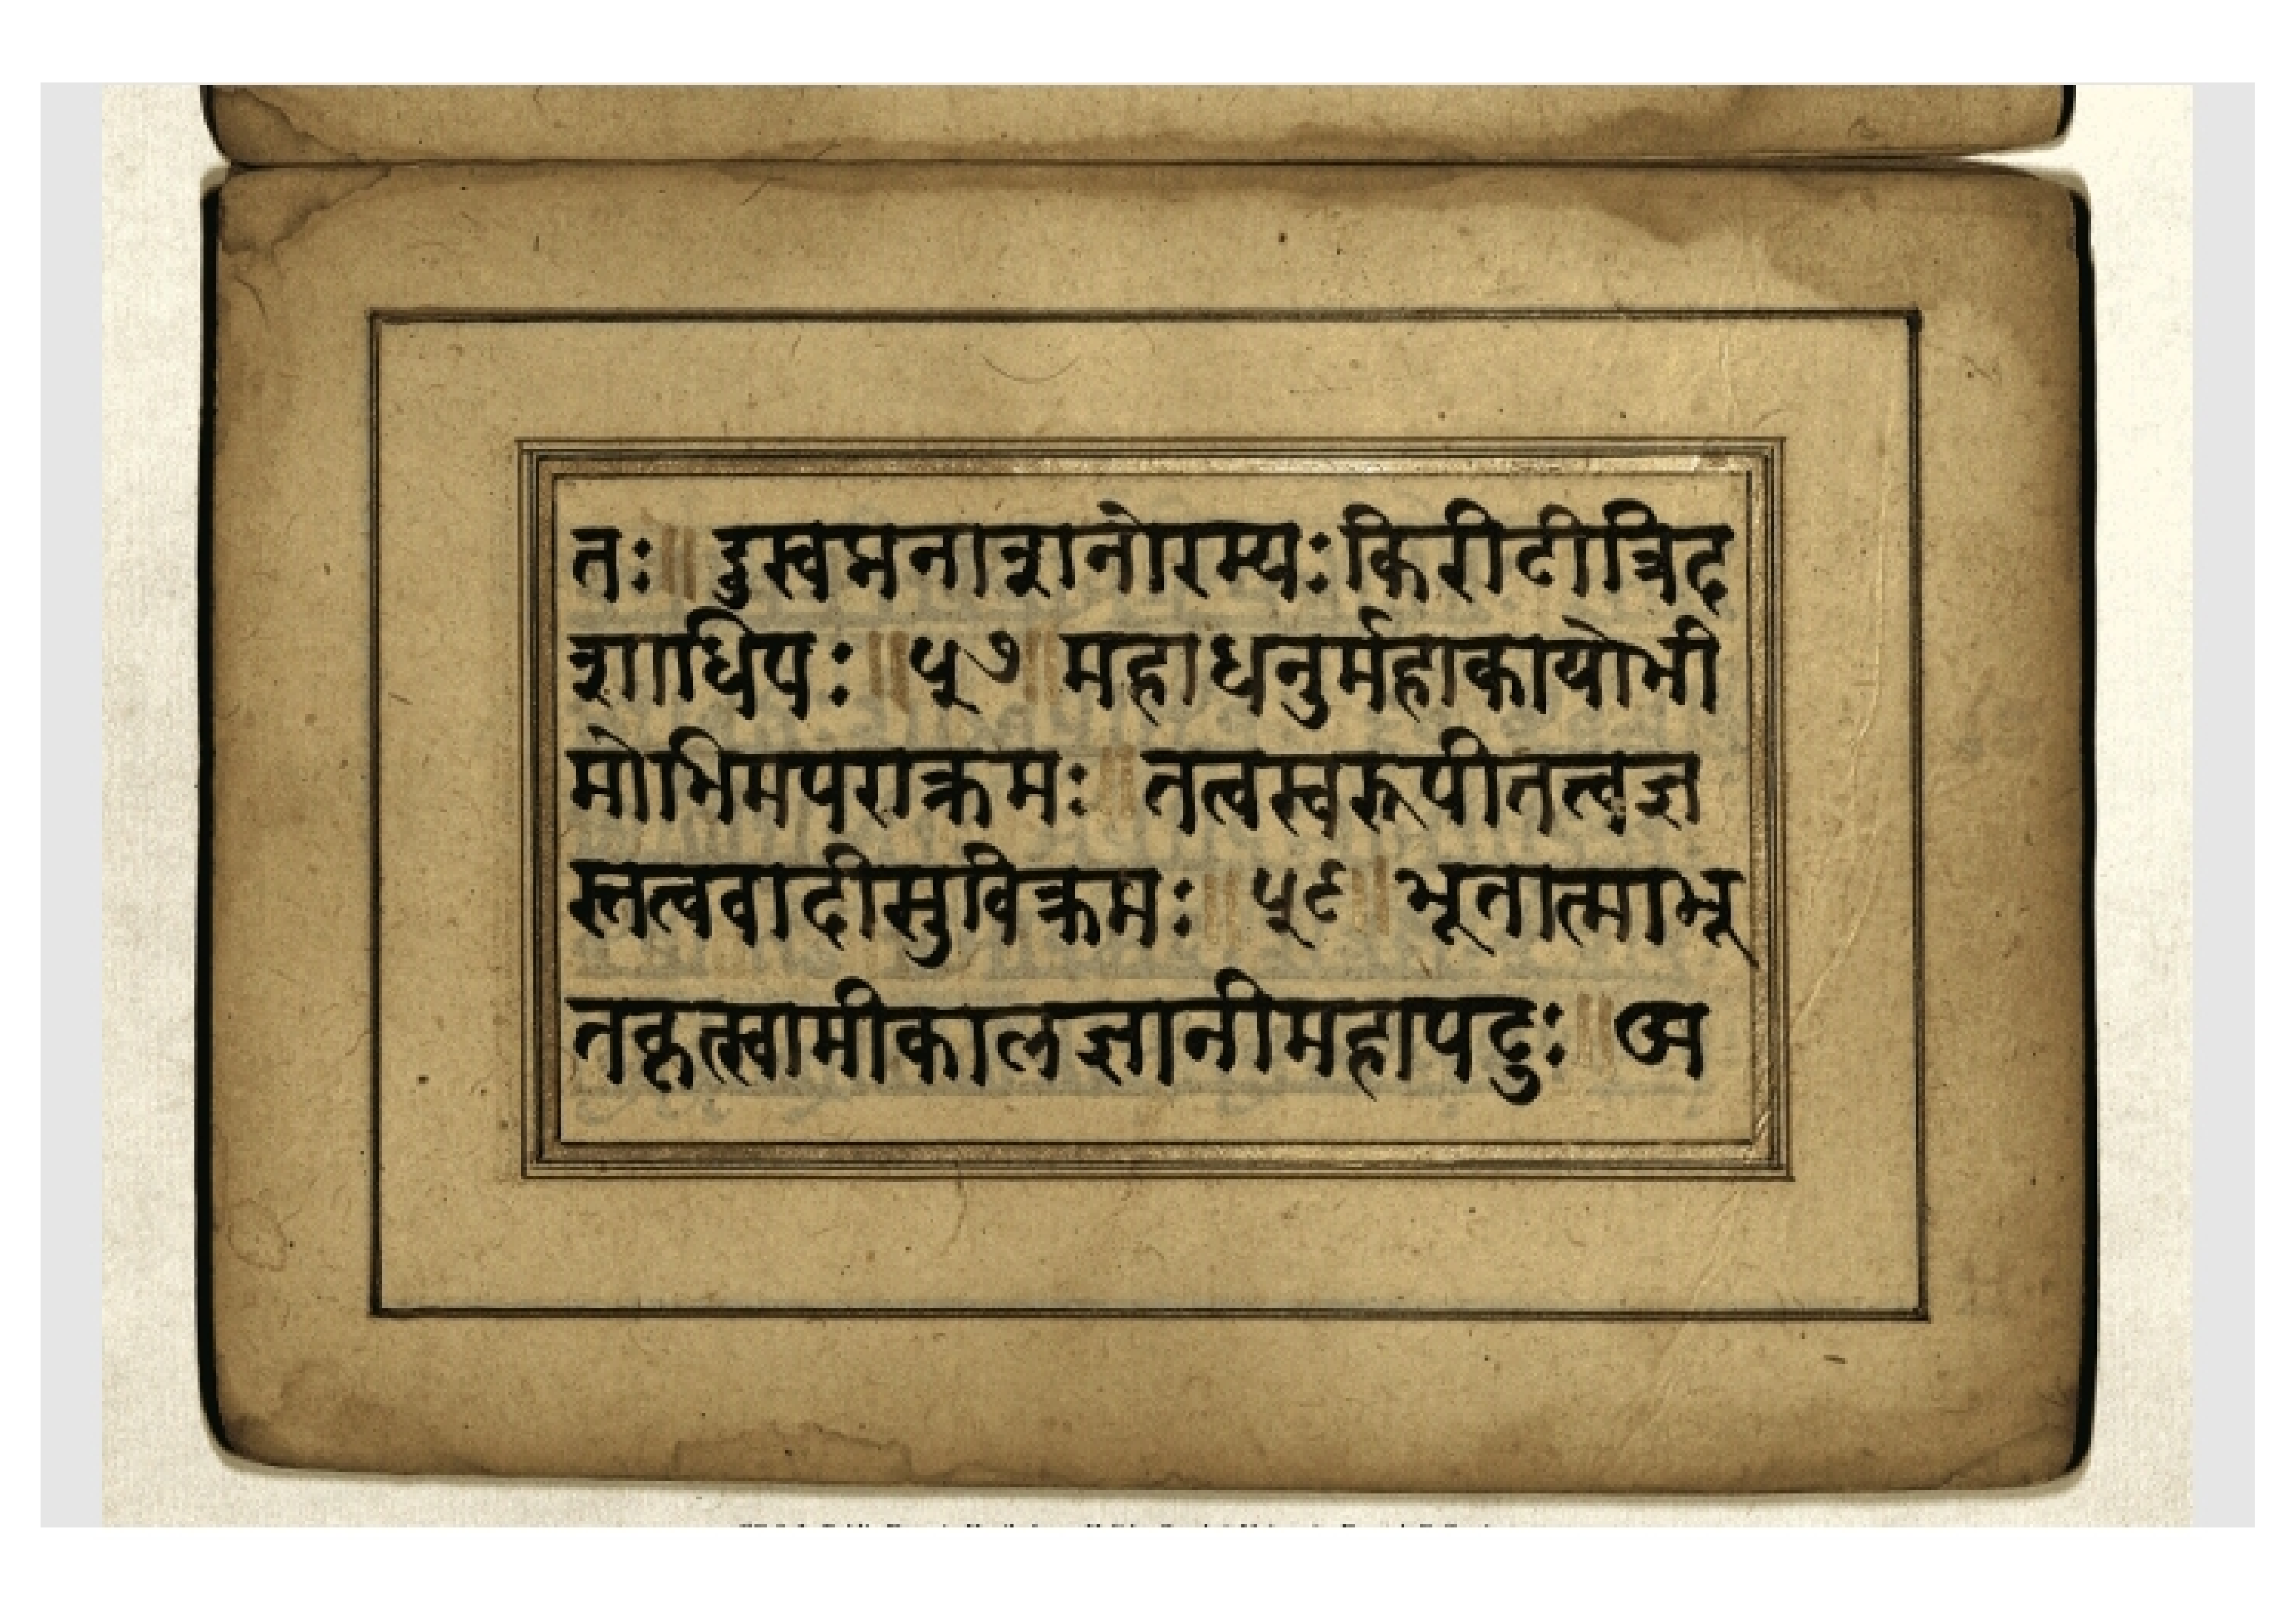 तः॥ दुस्वप्ननाशनोरम्यःकिरीटीत्रिद
शाधिपः॥५७॥महाधनुर्महाकायोभी
मोभिमपराक्रमः॥तत्वस्वरूपीतत्त्वज्ञ
स्तत्ववादीसुविक्रमः॥५९॥भूतात्माभू
तकृत्स्वामीकालज्ञानीमहापटुः॥अ